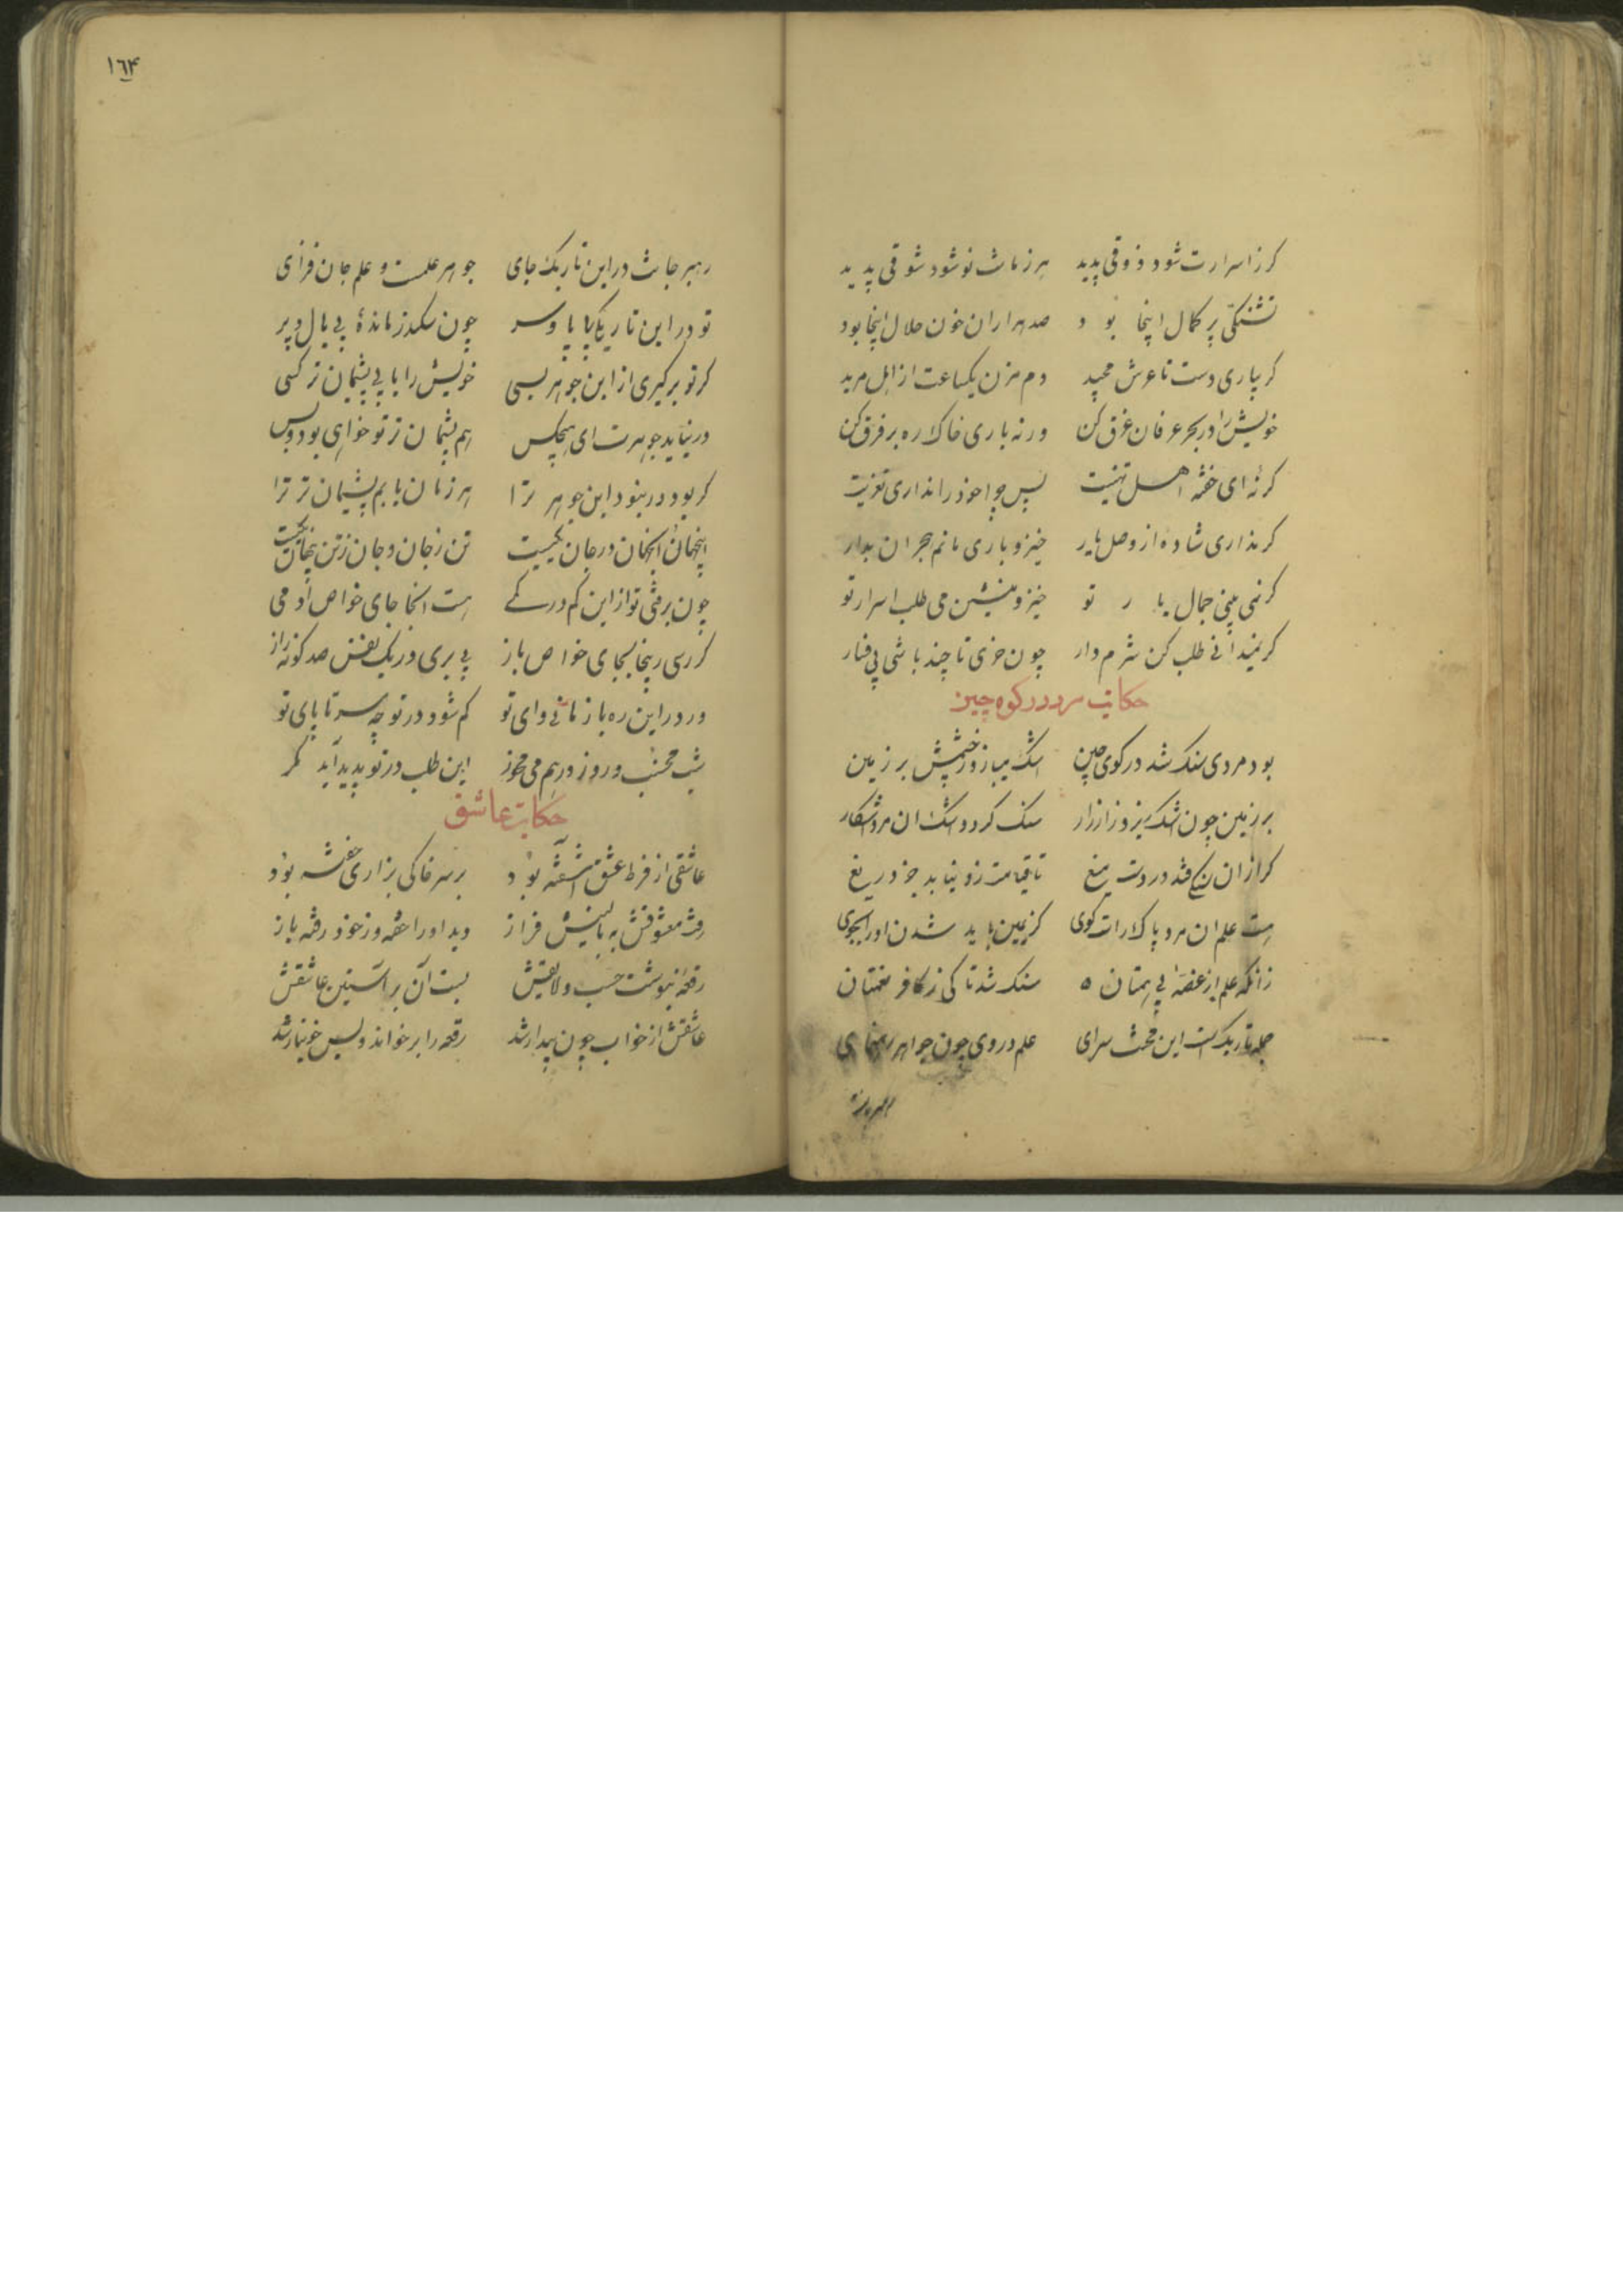 کر ز اسرارت شود ذوقی پدید هر زمانت نو شود شوقی پدید
تشنکی پر کمال اینجا بود صد هزاران خون حلال اینجا بود
کر بیاری دست تا عرش مجید دم مزن یکساعت از هل من مزید
خویش را در بحر عرفان غرق کن ورنه باری خاک ره بر فرق کن
کر نه‌ای خفته اهل تهنیت پس چرا خود را نداری تعزیت
کر نداری شادی از وصل یار خیز و باری ماتم هجران بدار
کر نمی بینی جمال یار تو خیز و منشین می طلب اسرار تو
کر نمیدانی طلب کن شرم دار چون خری تا چند باشی بی فسار
حکایت مرد در کوه چین
بود مردی سنک شد در کوی چین اشک میبارد ز چشمش بر زمین
بر زمین چون اشک ریزد زار زار سنک کردد اشک ان مرد اشکار
کر از ان سنکی فتد در دست میغ تا قیامت زو نیابد جز دریغ
هست علم ان مرد پاک راست کوی کر بچین باید شدن او را بجوی
زانکه علم از غصه بی همتان سنک شد تا کی ز کافر نعمتان
جمله تاریکست این محنت سرای علم در وی چون جواهر رهنمای
رهبر
۱۶۴
رهبر جانت در این تاریک جای جوهر علمست و علم جان فزای
تو در این تاریکی بی پا و سر چون سکندر مانده‌ٔ بی بال و پر
کر تو بر کیری از این جوهر بسی خویش را یابی پشیمان تر کسی
ور نیابد جوهرت ای هیچکس هم پشیمان تر تو خواهی بود و بس
کر بود ور نبود این جوهر ترا هر زمان یابم پشیمان تر ترا
اینجهان و انجهان در جان کمست تن ز جان و جان ز تن پنهان کمست
چون برفتی تو از این کم در کمی هست انجا جای خاص ادمی
کر رسی زینجا بجای خاص باز پی بری در یک نفس صد کونه راز
ور در این ره باز مانی وای تو کم شود در نوحه سر تا پای تو
شب مخسب و روز در هم می مخور این طلب در تو پدید آید مکر
حکایت عاشق
عاشقی از فرط عشق آشفته بود بر سر خاکی بزاری خفته بود
رفت معشوقش به بالینش فراز دید او را خفته وز خود رفته باز
رقعهٔ بنوشت چست و لایقش بست آن بر آستین عاشقش
عاشقش از خواب چون بیدار شد رقعه را بر خواند و بس خونبار شد